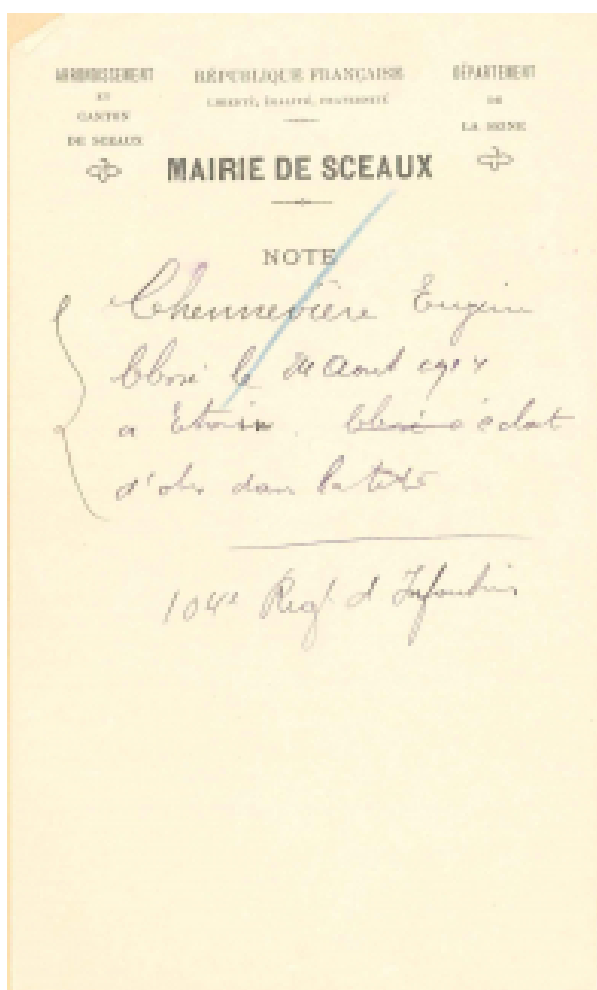 ARRONDISSEMENT
ET
CANTON
DE SCEAUX
RÉPUBLIQUE FRANÇAISE
LIBERTÉ, ÉGALITÉ, FRATERNITÉ
DÉPARTEMENT
DE
LA SEINE
MAIRIE DE SCEAUX
NOTE
Chennevière Eugène
le 24 Aout 1914
a Etain. éclat
d'obus dans la tête
104e Regt d'Infanterie